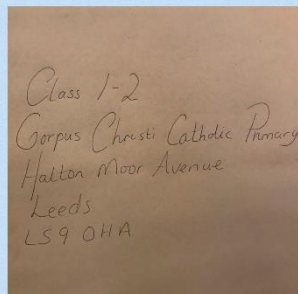 Class 1-2
Corpus Christi Catholic Primary
Halton Moor Avenue
Leeds
LS9 0HA